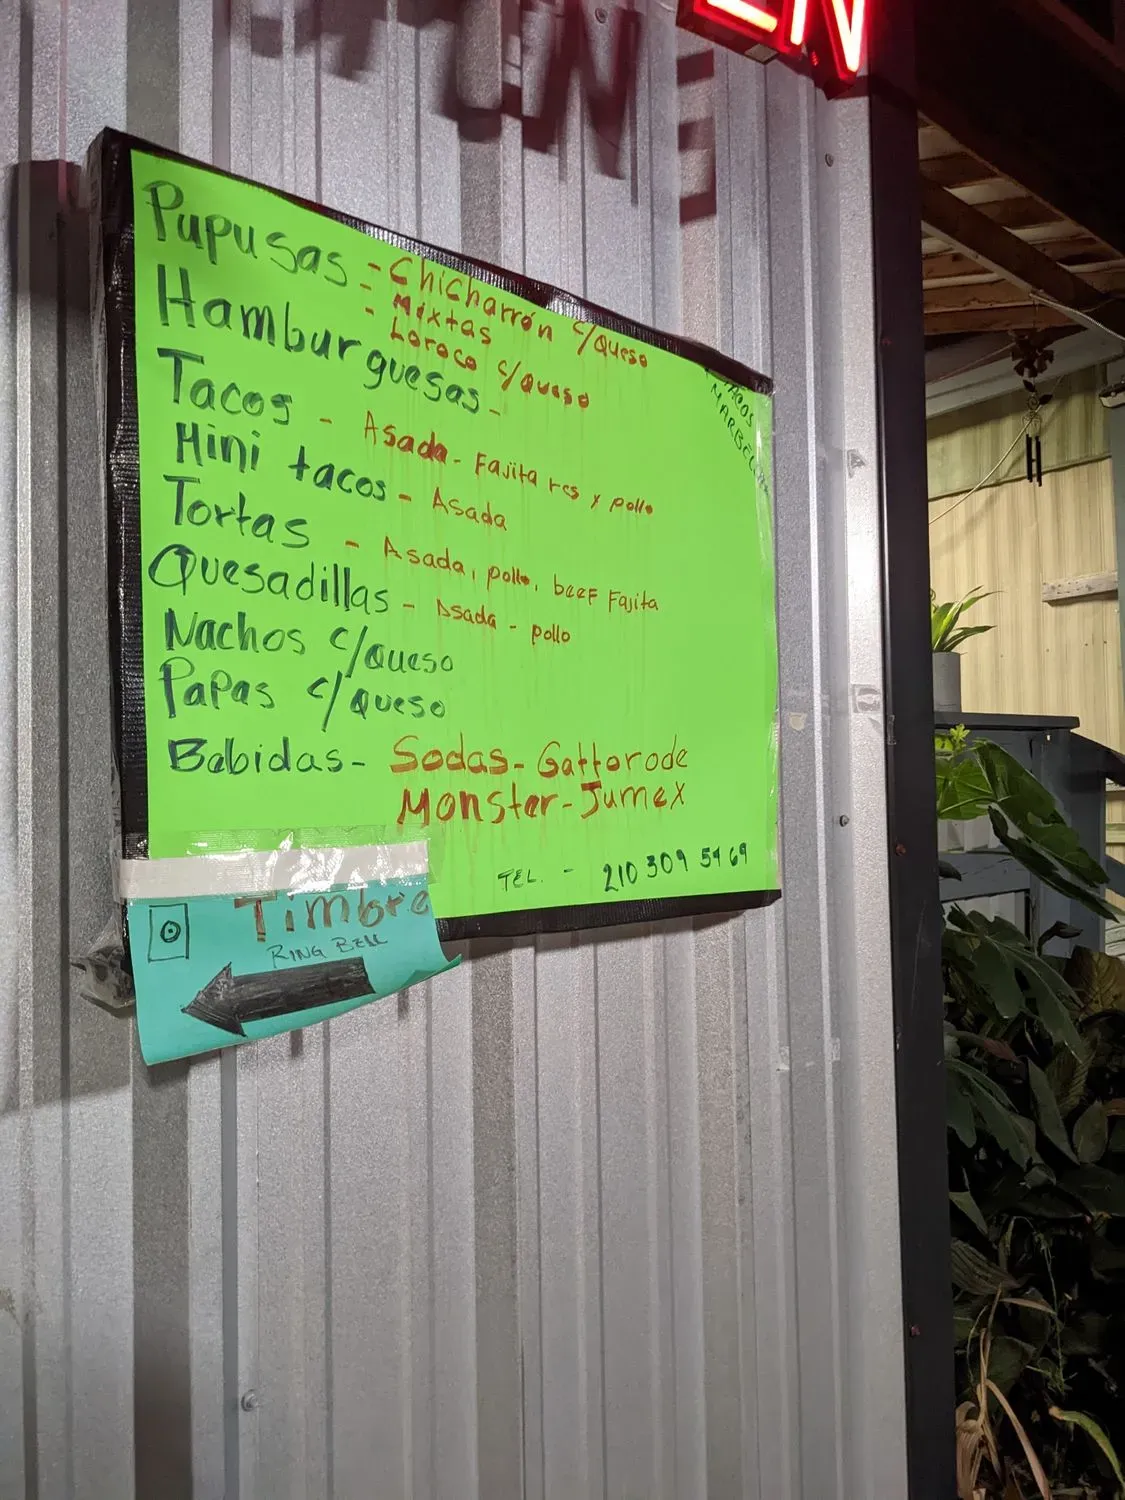 EN
Pupusas - Chicharrón c/Queso
- Mixtas
- Loroco c/Queso
Hamburguesas -
Tacos - Asada - Fajita res y pollo
Mini tacos - Asada
Tortas - Asada, pollo, beef Fajita
Quesadillas - Asada - pollo
Nachos c/Queso
Papas c/queso
Bebidas - Sodas - Gattorode
Monster - Jumex
TEL. - 210 309 5469
TACOS
Timbre
RING BELL